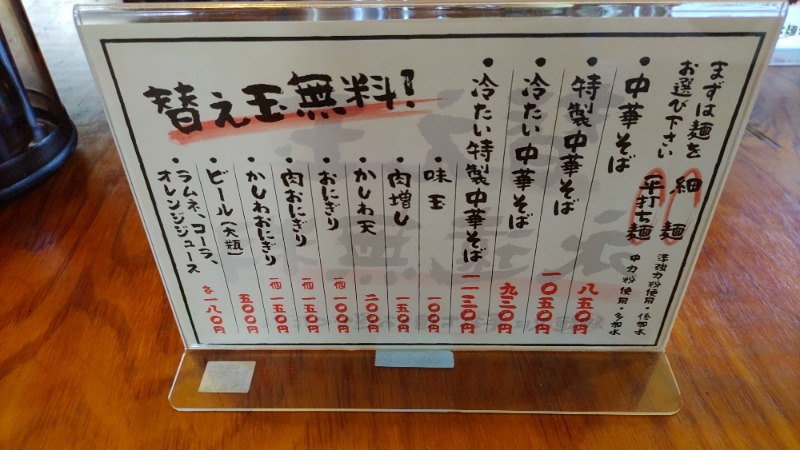 まずは麺を
お選び下さい
細麺
準強力粉使用・低加水
平打ち麺
中力粉使用・多加水
・中華そば 八五〇円
・特製中華そば 一〇五〇円
・冷たい中華そば 九三〇円
・冷たい特製中華そば 一一三〇円
替え玉無料!
・味玉 一〇〇円
・肉増し 一五〇円
・かしわ天 二〇〇円
・おにぎり 一個 一〇〇円
・肉おにぎり 一個 一五〇円
・かしわおにぎり 一個 一五〇円
・ビール(大瓶) 五〇〇円
・ラムネ、コーラ、
オレンジジュース 各一八〇円